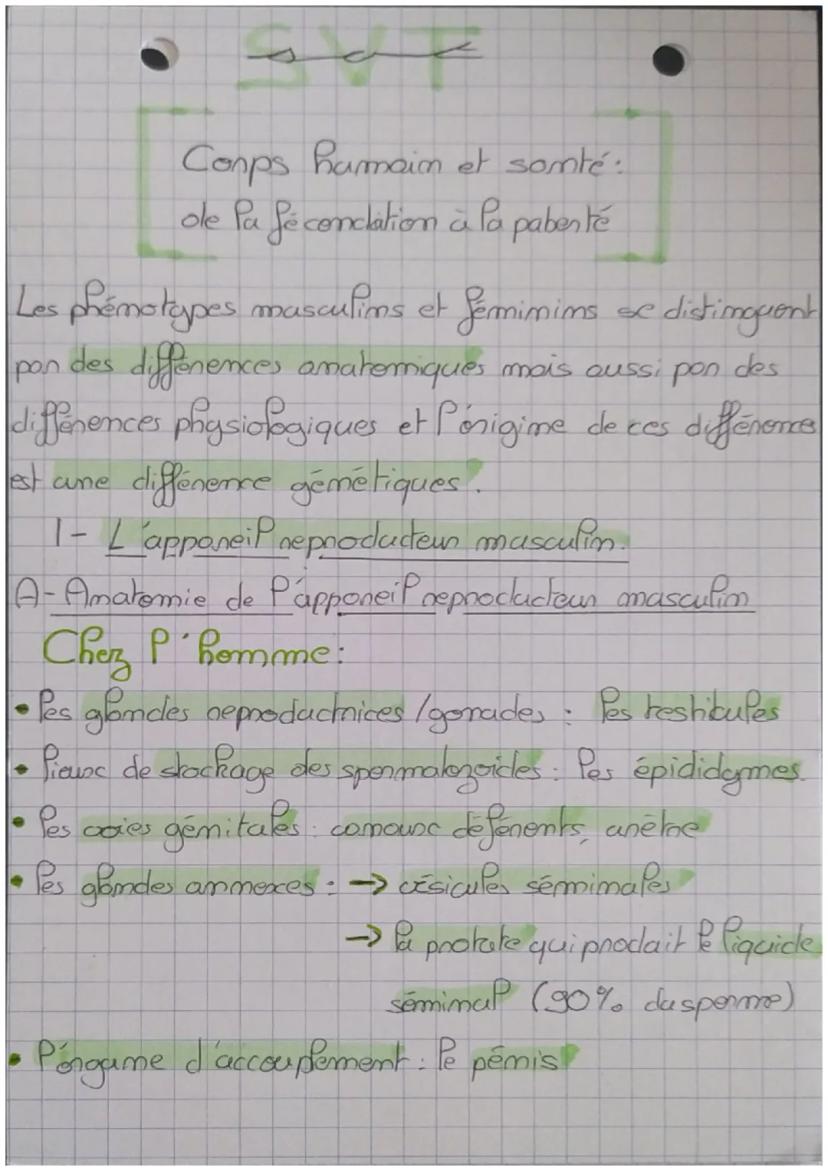 SVT
Corps humain et santé :
de la fécondation à la puberté
Les phénotypes masculins et féminins se distinguent
par des différences anatomiques mais aussi par des
différences physiologiques et l'origine de ces différences
est une différence génétiques.
I - L'appareil reproducteur masculin.
A - Anatomie de l'appareil reproducteur masculin
Chez l'homme :
• les glandes reproductrices / gonades : les testicules
• lieux de stockage des spermatozoïdes : les épididymes.
• les voies génitales : canaux déférents, urètre
• les glandes annexes : → vésicules séminales
→ la protate qui produit le liquide
séminal (90% du sperme)
• l'organe d'accouplement : le pénis